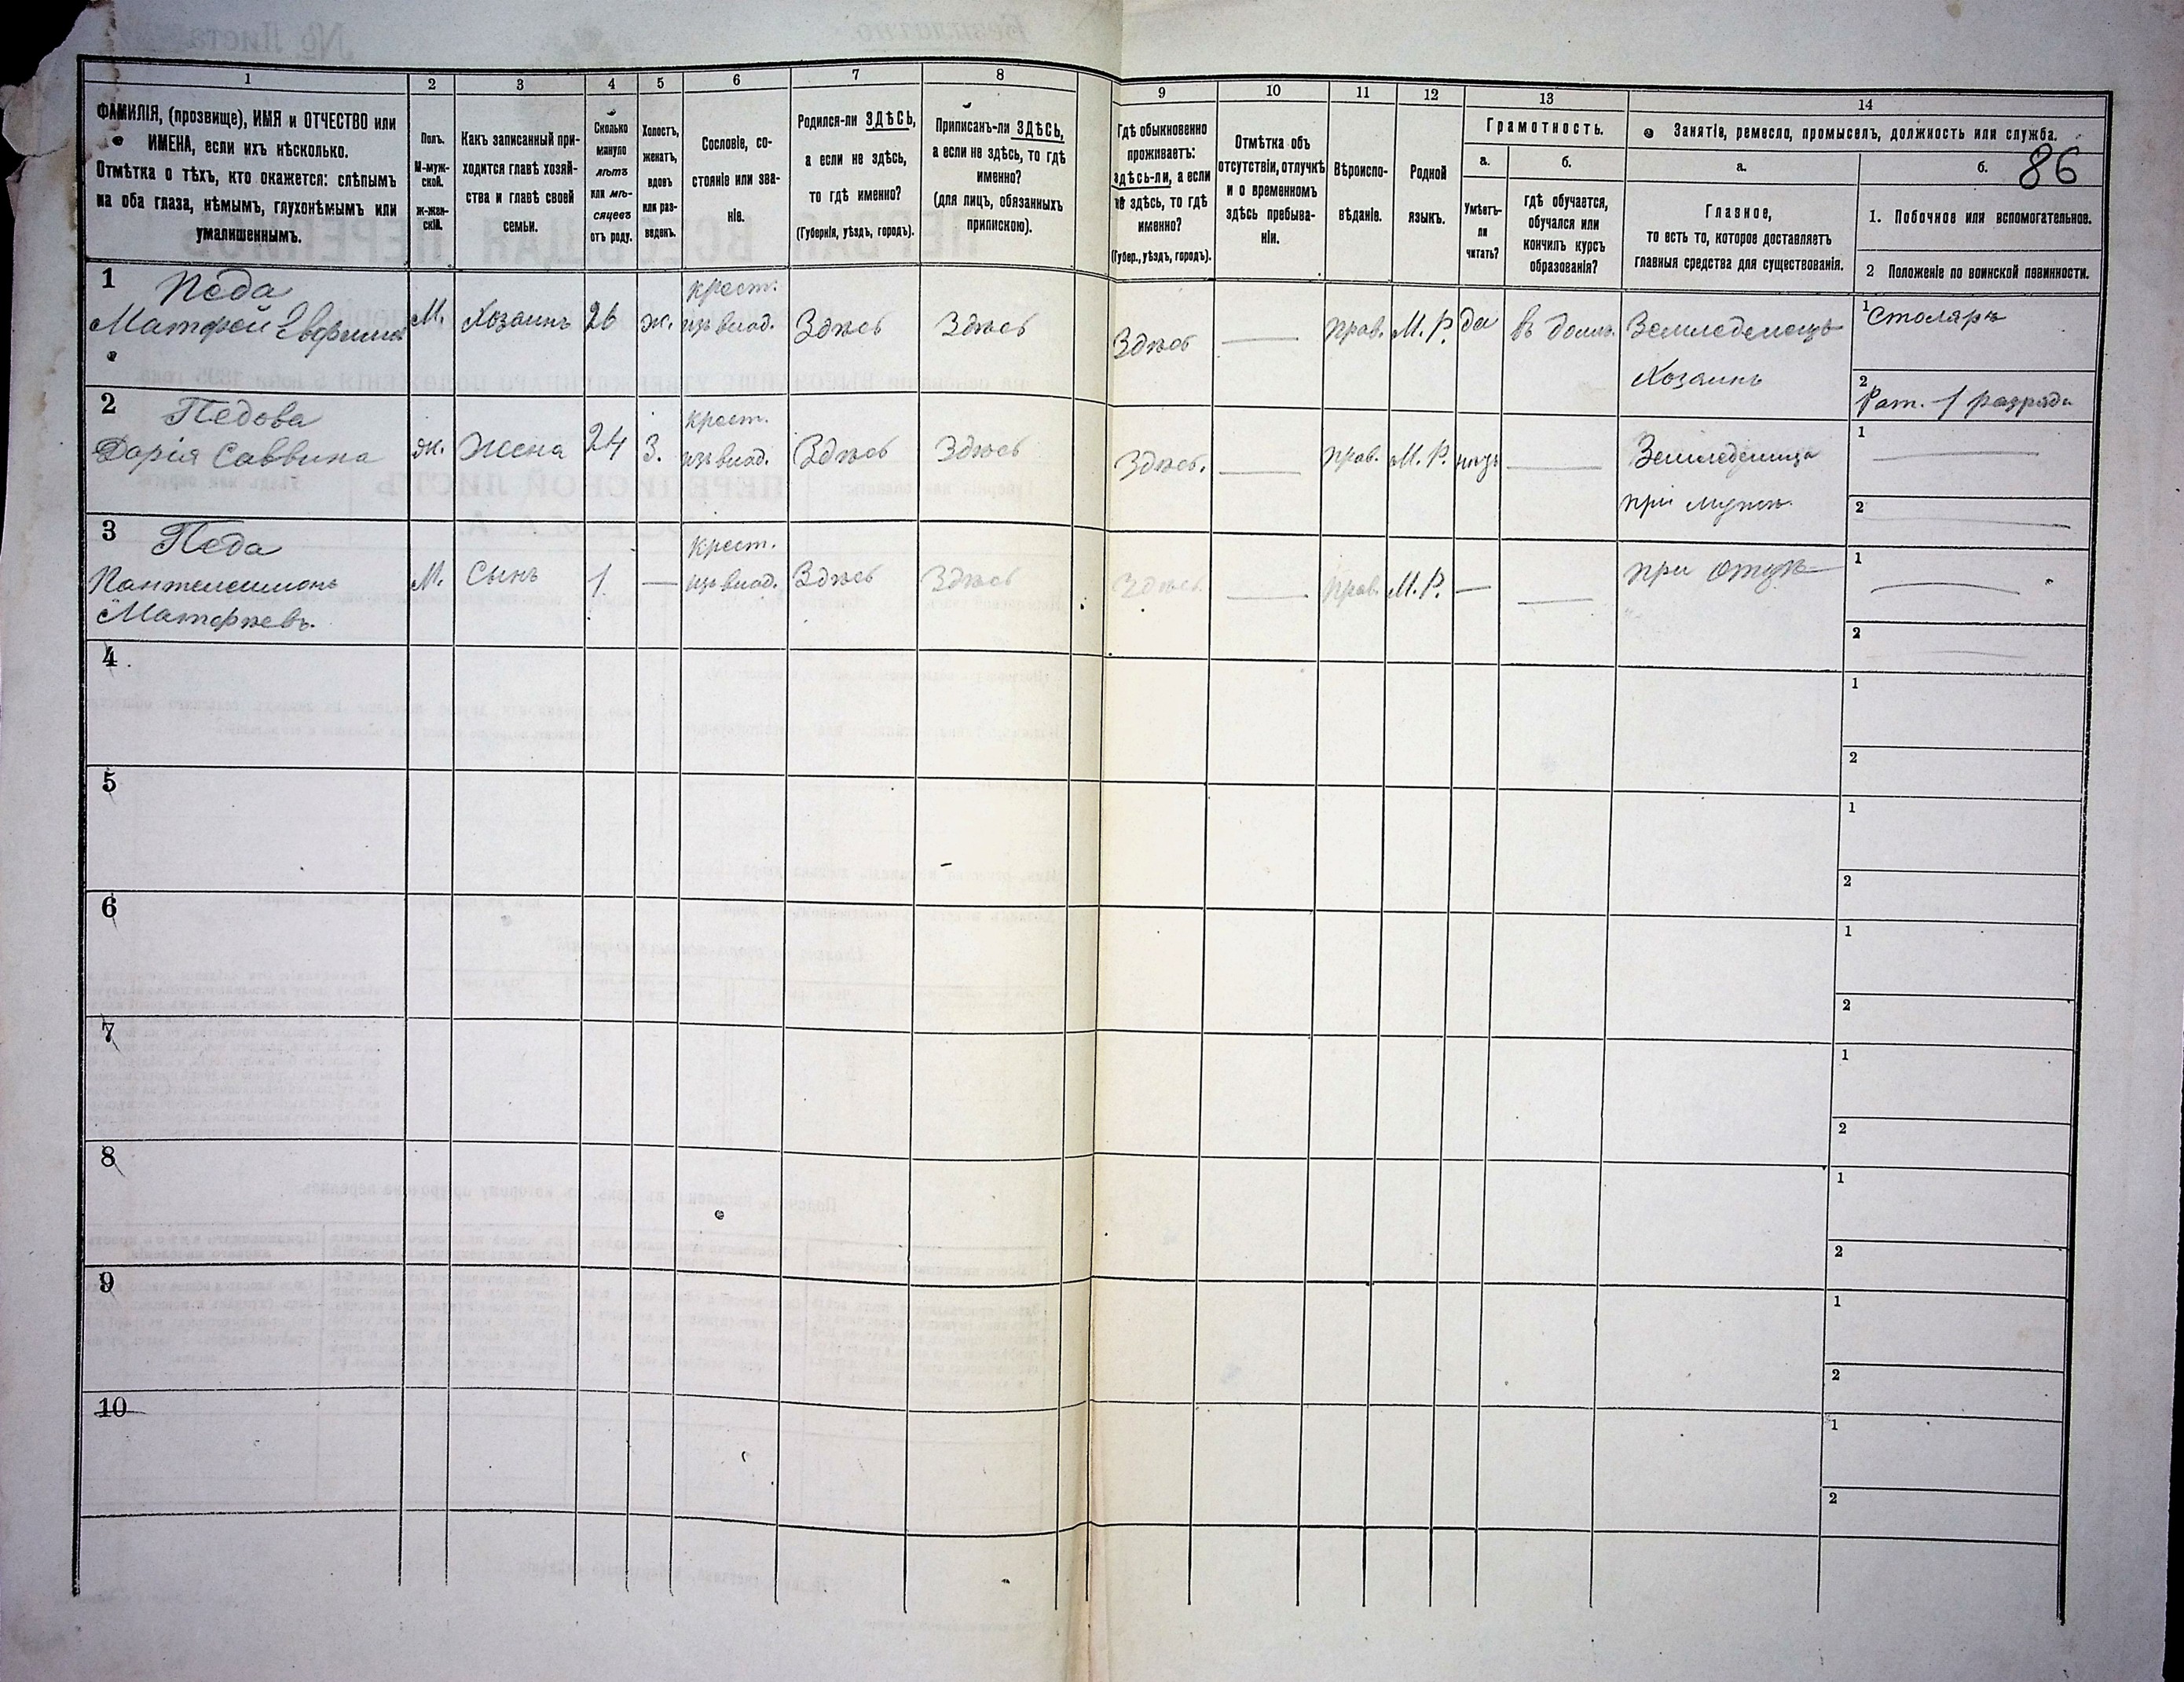 86
1 2 3 4 5 6 7 8 9 10 11 12 13 14
ФАМИЛІЯ, (прозвище), ИМЯ и ОТЧЕСТВО или
ИМЕНА, если ихъ нѣсколько.
Отмѣтка о тѣхъ, кто окажется: слѣпымъ
на оба глаза, нѣмымъ, глухонѣмымъ или
умалишеннымъ.
Полъ.
М-муж-
ской.
ж-жен-
скій.
Какъ записанный при-
ходится главѣ хозяй-
ства и главѣ своей
семьи.
Сколько
минуло
лѣтъ
или мѣ-
сяцевъ
отъ роду.
Холостъ,
женатъ,
вдовъ
или раз-
веденъ.
Сословіе, со-
стояніе или зва-
ніе.
Родился-ли ЗДѢСЬ,
а если не здѣсь,
то гдѣ именно?
(Губернія, уѣздъ, городъ).
Приписанъ-ли ЗДѢСЬ,
а если не здѣсь, то гдѣ
именно?
(для лицъ, обязанныхъ
припискою).
Гдѣ обыкновенно
проживаетъ:
здѣсь-ли, а если
не здѣсь, то гдѣ
именно?
(Губер., уѣздъ, городъ).
Отмѣтка объ
отсутствіи, отлучкѣ
и о временномъ
здѣсь пребыва-
ніи.
Вѣроиспо-
вѣданіе.
Родной
языкъ.
Грамотность.
а.
Умѣетъ-
ли
читать?
б.
гдѣ обучается,
обучался или
кончилъ курсъ
образованія?
Занятіе, ремесло, промыселъ, должность или служба.
а.
Главное,
то есть то, которое доставляетъ
главныя средства для существованія.
б.
1. Побочное или вспомогательное.
2 Положеніе по воинской повинности.
1 Педа
Матфей М. Хозяинъ 26 ж. крест.
изъ влад. Здѣсь Здѣсь Здѣсь — прав. М. Р. да въ домѣ Земледелецъ
Хозяинъ
1 Столяръ
2 Рат. 1 разряда
2 Педова
Дарія Саввина ж. Жена 24 З. крест.
изъ влад. Здѣсь Здѣсь Здѣсь. — прав. М. Р. —
при мужѣ
1 —
2 —
3 Педа
Пантелеимонъ
Матфѣевъ. М. Сынъ 1 — крест.
изъ влад. Здѣсь Здѣсь Здѣсь. — прав. М. Р. — — при отцѣ
1 —
2 —
4
1
2
5
1
2
6
1
2
7
1
2
8
1
2
9
1
2
10
1
2